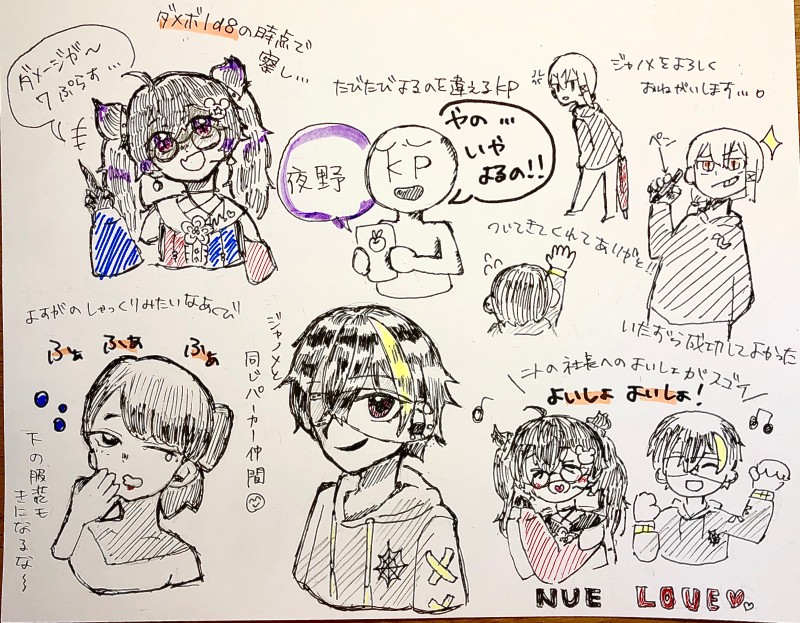 ダメボ1d8の時点で
察し…
ダメージが〜
7ぷらす…
たびたびよるのを違えるKP
やの…
いや
よるの!!
夜野
KP
ジャノメをよろしく
おねがいします…。
ペン
ついてきてくれてありがと!!
いたずら成功してよかった
よすがのしゃっくりみたいなあくび
ふぁ ふぁぁ ふぁ
下の服装も
きになるな〜
ジャノメと
同じパーカー仲間
ニトの社長へのよいしょがスゴイ
よいしょ よいしょ!
NUE LOVE